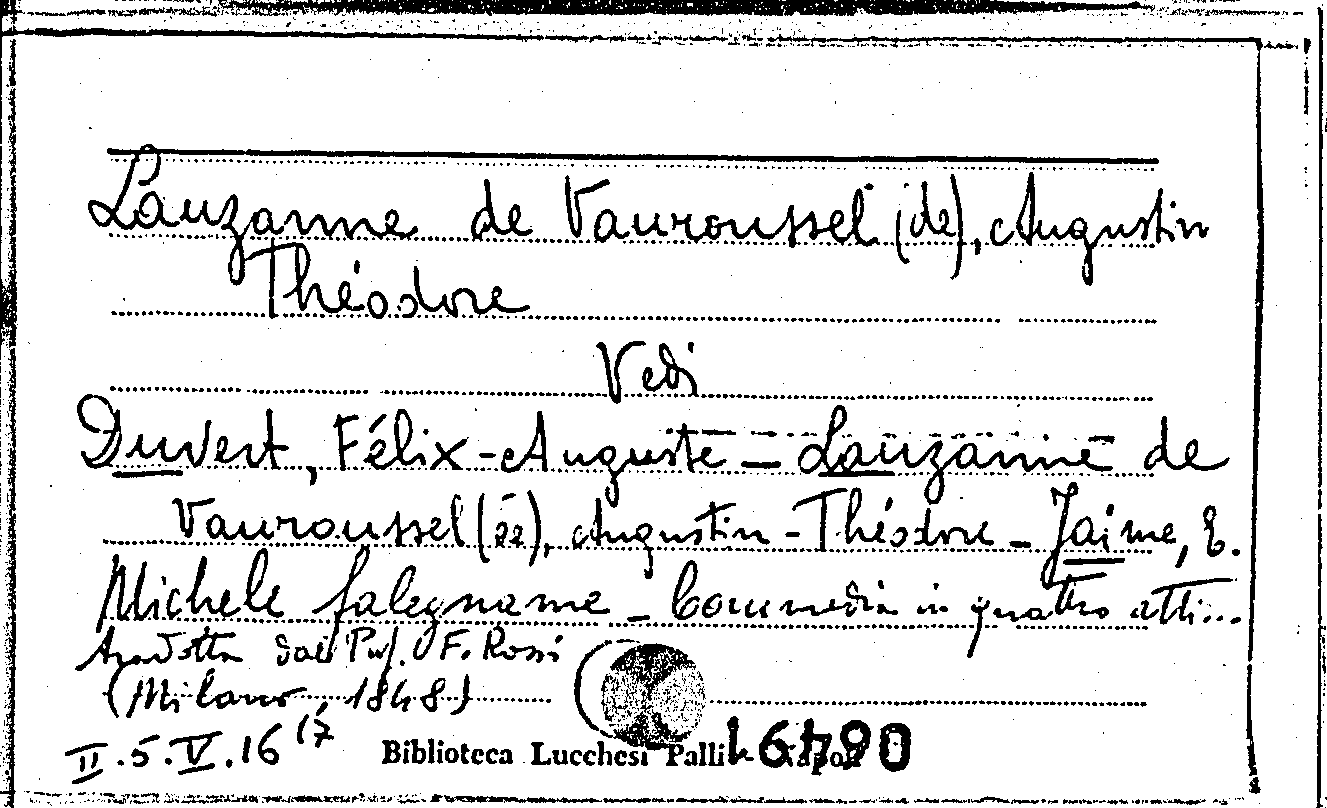 Lauzanne de Vauroussel (de), Augustin
Théodore
Vedi
Duvert, Félix-Auguste – Lauzanne de
Vauroussel (de), Augustin-Théodore – Jaime, E.
Michele falegname – Commedia in quattro atti...
tradotta dal Prof. F. Rossi
(Milano, 1848)
II.5.V.16 (7
Biblioteca Lucchesi Palli - Napoli